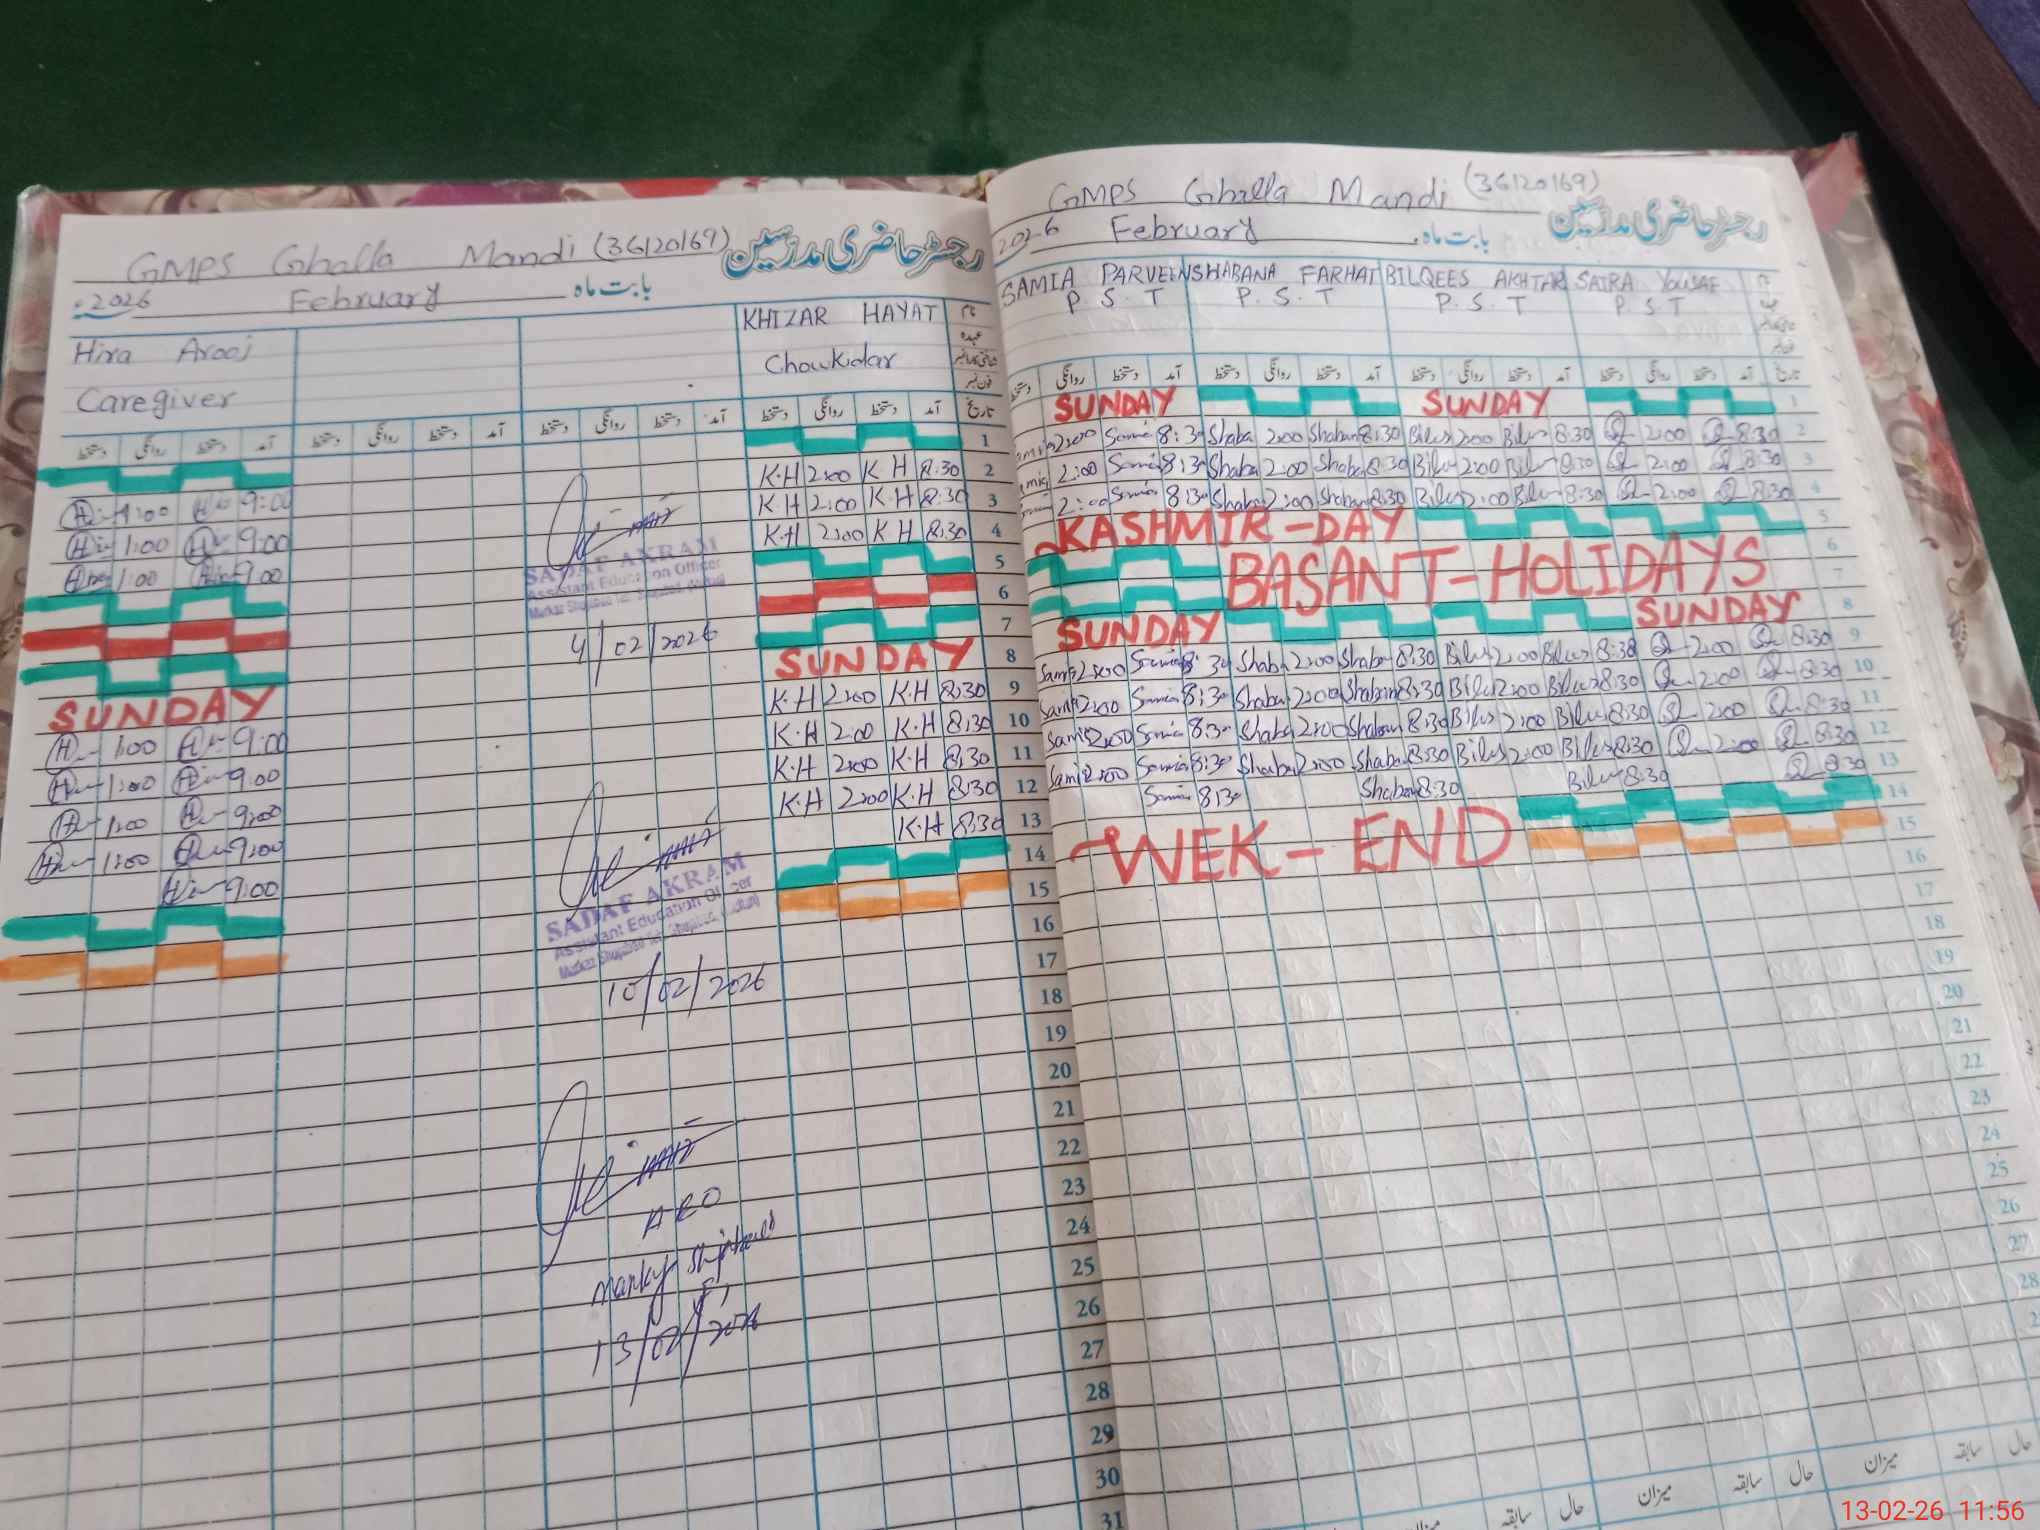 GMPS Ghalla Mandi (36120169) رجسٹر حاضری مدرسین
2026 February بابت ماہ
Hira Arooj
Caregiver
KHIZAR HAYAT نام
عہدہ
Chowkidar شناختی کارڈ نمبر
فون نمبر
دستخط روانگی دستخط آمد دستخط روانگی دستخط آمد دستخط روانگی دستخط آمد دستخط روانگی دستخط آمد تاریخ
1
1:00 9:00 K.H 2:00 K H 8:30 2
1:00 9:00 K.H 2:00 K.H 8:30 3
1:00 9:00 K.H 2:00 K H 8:30 4
5
6
7
SUNDAY SUNDAY 8
1:00 9:00 K.H 2:00 K.H 8:30 9
1:00 9:00 K.H 2:00 K.H 8:30 10
1:00 9:00 K.H 2:00 K.H 8:30 11
1:00 9:00 K.H 2:00 K.H 8:30 12
9:00 K.H 8:30 13
14
15
16
17
18
19
20
21
22
23
24
25
26
27
28
29
30
31
SADAF AKRAM
Assistant Education Officer
4/02/2026
SADAF AKRAM
Assistant Education Officer
10/02/2026
AEO
13/02/2026
GMPS Ghalla Mandi (36120169) رجسٹر حاضری مدرسین
2026 February بابت ماہ
SAMIA PARVEEN SHABANA FARHAT BILQEES AKHTAR SAIRA YOUSAF نام
P.S.T P.S.T P.S.T P.S.T
دستخط روانگی دستخط آمد دستخط روانگی دستخط آمد دستخط روانگی دستخط آمد دستخط روانگی دستخط آمد تاریخ
SUNDAY SUNDAY 1
2:00 Samia 8:30 Shaba 2:00 Shaban 8:30 Bilus 2:00 Bilus 8:30 2:00 8:30 2
2:00 Samia 8:30 Shaba 2:00 Shaba 8:30 Bilus 2:00 Bilus 8:30 2:00 8:30 3
2:00 Samia 8:30 Shaba 2:00 Shaban 8:30 Bilus 2:00 Bilus 8:30 2:00 8:30 4
KASHMIR-DAY 5
6
BASANT-HOLIDAYS 7
SUNDAY SUNDAY 8
Sami 2:00 Samia 8:30 Shaba 2:00 Shaban 8:30 Bilus 2:00 Bilus 8:30 2:00 8:30 9
Sami 2:00 Samia 8:30 Shaba 2:00 Shaban 8:30 Bilus 2:00 Bilus 8:30 2:00 8:30 10
Sami 2:00 Samia 8:30 Shaba 2:00 Shaban 8:30 Bilus 2:00 Bilus 8:30 2:00 8:30 11
Sami 2:00 Samia 8:30 Shaba 2:00 Shaba 8:30 Bilus 2:00 Bilus 8:30 2:00 8:30 12
Samia 8:30 Shaban 8:30 Bilus 8:30 8:30 13
14
WEK-END 15
16
17
18
19
20
21
22
23
24
25
26
27
28
میزان حال سابقہ میزان حال سابقہ میزان سابقہ حال
13-02-26 11:56